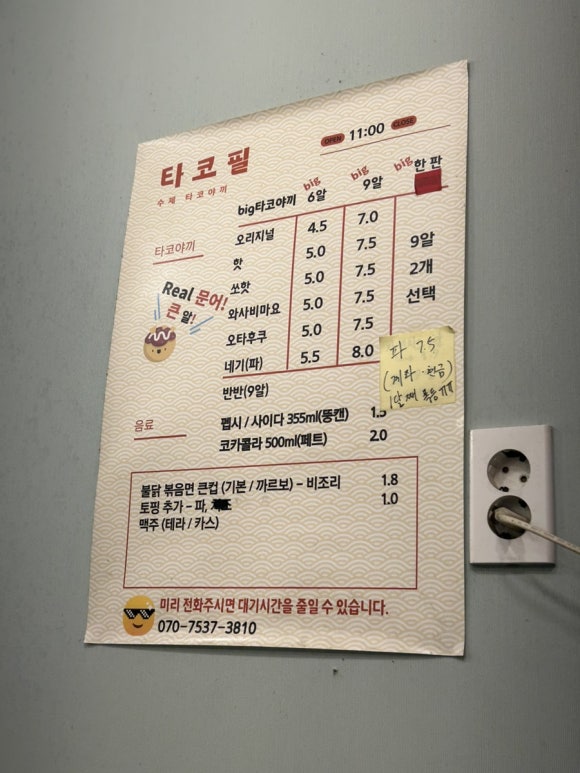 타코필
수제 타코야끼
OPEN 11:00 CLOSE
big타코야끼 big 6알 big 9알 big한판
타코야끼
오리지널 4.5 7.0
핫 5.0 7.5
쏘핫 5.0 7.5
와사비마요 5.0 7.5
오타후쿠 5.0 7.5
네기(파) 5.5 8.0
반반(9알)
9알
2개
선택
Real 문어!
큰 알!
파 7.5
(계좌·현금)
음료
펩시 / 사이다 355ml(뚱캔) 1.5
코카콜라 500ml(페트) 2.0
불닭 볶음면 큰컵 (기본 / 까르보) - 비조리 1.8
토핑 추가 - 파, 1.0
맥주 (테라 / 카스)
미리 전화주시면 대기시간을 줄일 수 있습니다.
070-7537-3810